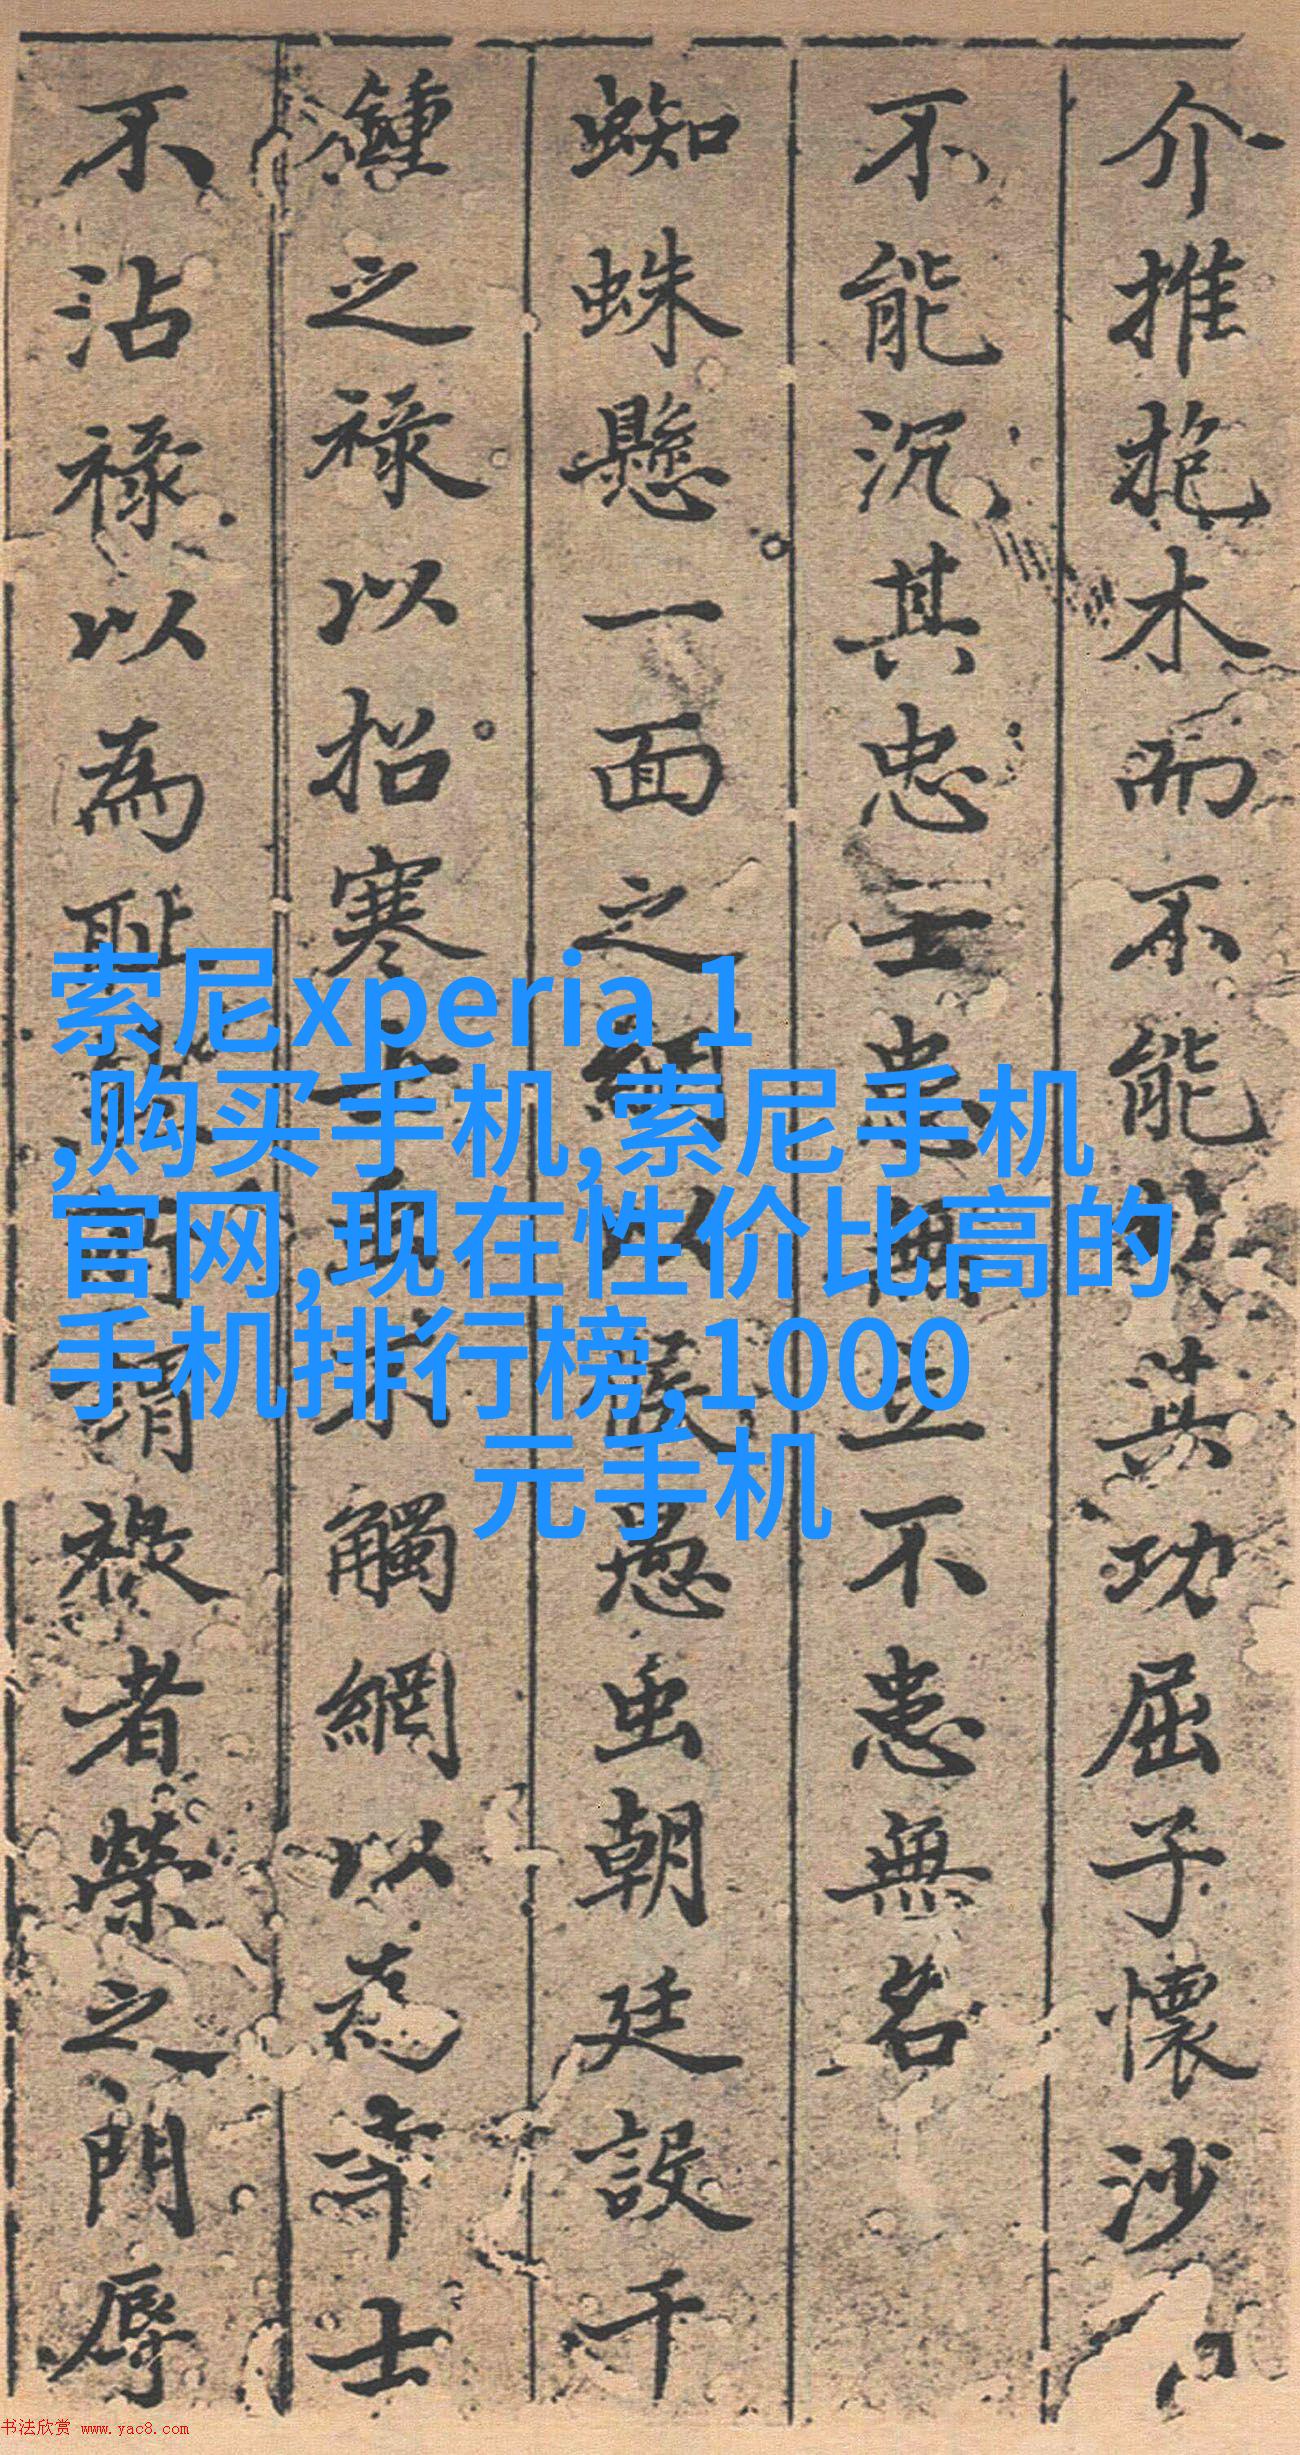 介推抱木而不能其功屈子懷沙
不能沉其忠士患無立不患無名
蜘蛛懸一面之網以愚虫朝廷設千
鍾之祿以招寒士未觸網以為士
不沾祿以為耻謂祿者榮之門辱
索尼xperia 1
,购买手机,索尼手机
官网,现在性价比高的
手机排行榜,1000
元手机
书法欣赏 www.yac8.com